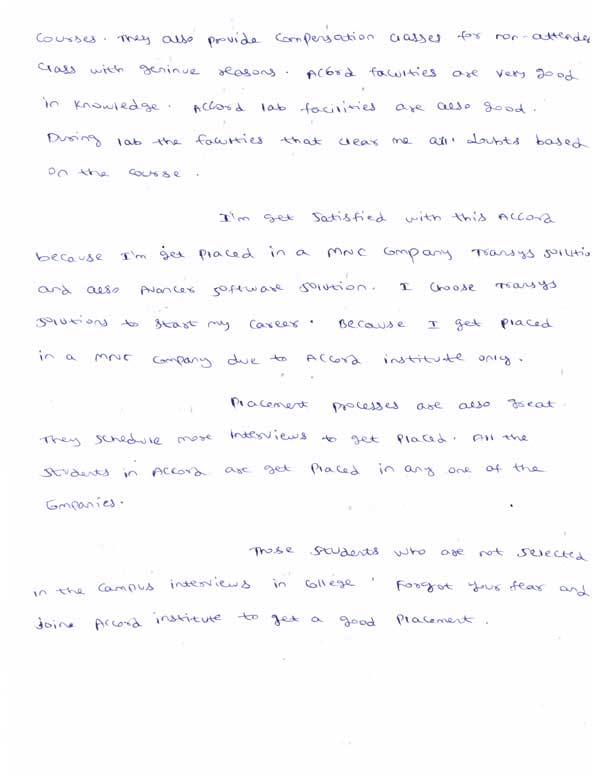 Courses. They also provide Compensation classes for non-attended
Class with geninue reasons. Accord faculties are very good
in Knowledge. Accord lab facilities are also good.
During lab the faculties that clear me all doubts based
on the course.
I'm get Satisfied with this Accord
because I'm get placed in a MNC Company Transys solution
and also Avancer software solution. I choose Transys
solutions to start my career. Because I get placed
in a MNC Company due to Accord institute only.
Placement processes are also great.
They schedule more interviews to get placed. All the
students in Accord are get placed in any one of the
Companies.
Those students who are not selected
in the campus interviews in college ' Forgot your fear and
joine Accord institute to get a good placement.